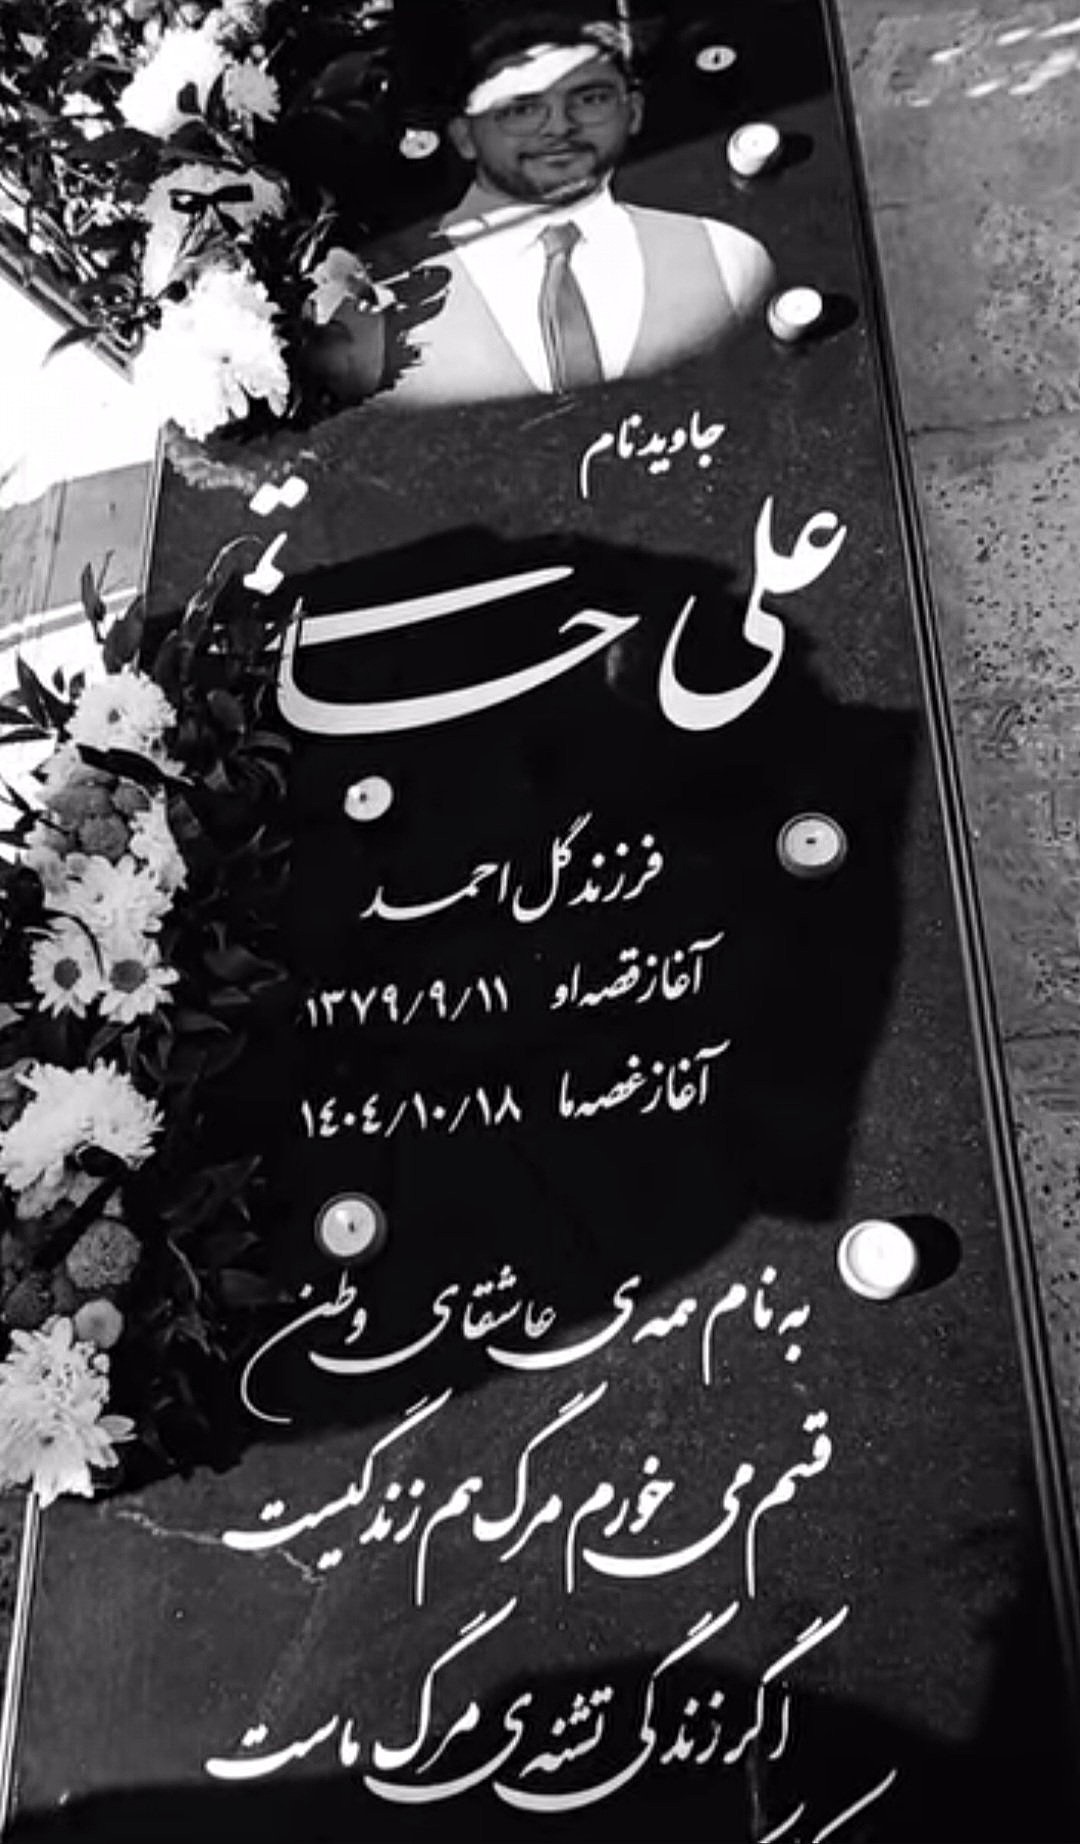 جاویدنام
علی حاتمی
فرزند گل احمد
آغاز قصه او ۱۳۷۹/۹/۱۱
آغاز غصه ما ۱٤۰٤/۱۰/۱۸
به نام همه‌ی عاشقای وطن
قسم می خورم مرگ هم زندگیست
اگر زندگی تشنه‌ی مرگ ماست